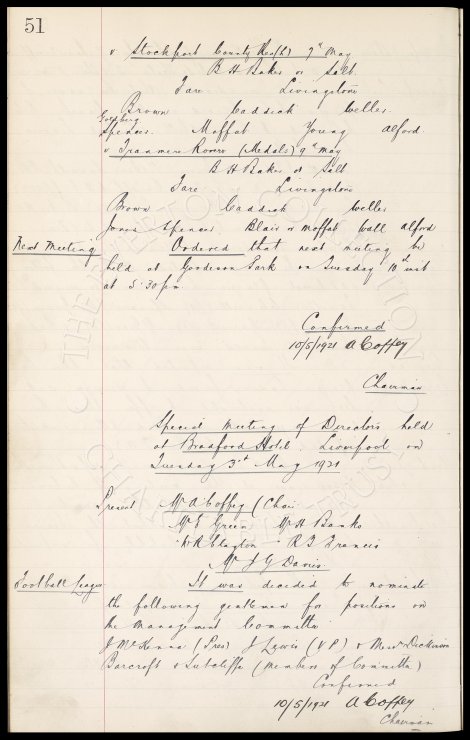 51
v Stockport County Res(h) 7th May
B H Baker or Salt.
Fare Livingstone
Brown Caddick Weller
Goldberg
Spencer. Moffat Young Alford
v Tranmere Rovers (Medals) 9th May
B H Baker or Salt
Fare Livingstone
Brown Caddick Weller
Jones Spencer. Blair or Moffat Wall Alford
Next Meeting Ordered that next meeting be
held at Goodison Park on Tuesday 10th inst
at 5.30pm.
Confirmed
10/5/1921 A Coffey
Chairman
Special Meeting of Directors held
at Bradford Hotel. Liverpool on
Tuesday 3rd May 1921
Present Mr A Coffey (Chair
Mr E Green Mr H Banks
" W R Clayton " R T Francis
Mr J G Davies
Football League It was decided to nominate
the following gentlemen for positions on
the Management Committee
J McKenna (Pres) J Lewis (V P) & Messrs Dickinson
Barcroft & Sutcliffe (Members of Committee)
Confirmed
10/5/1921 A Coffey
Chairman